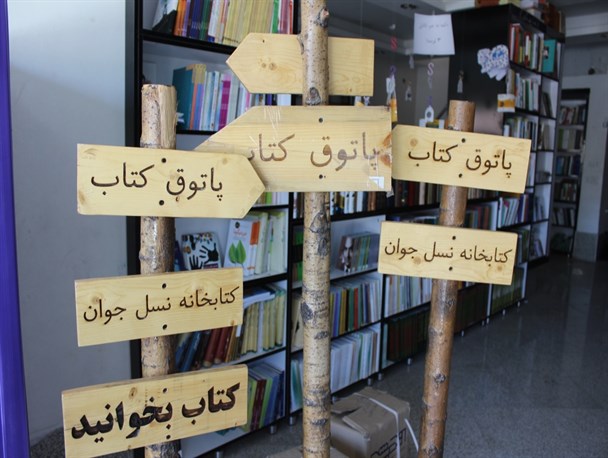 پاتوق کتاب
پاتوق کتاب
پاتوق کتاب
کتابخانه نسل جوان
کتابخانه نسل جوان
کتاب بخوانید